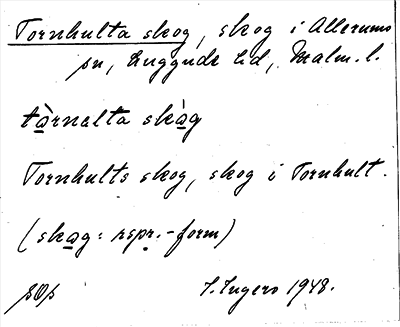 Tornhulta skog, skog i Allerums
sn, Luggude hd, Malm. l.
tàrnelta skàg
Tornhults skog, skog i Tornhult.
(skag: rspr.-form)
I. Ingers 1948.